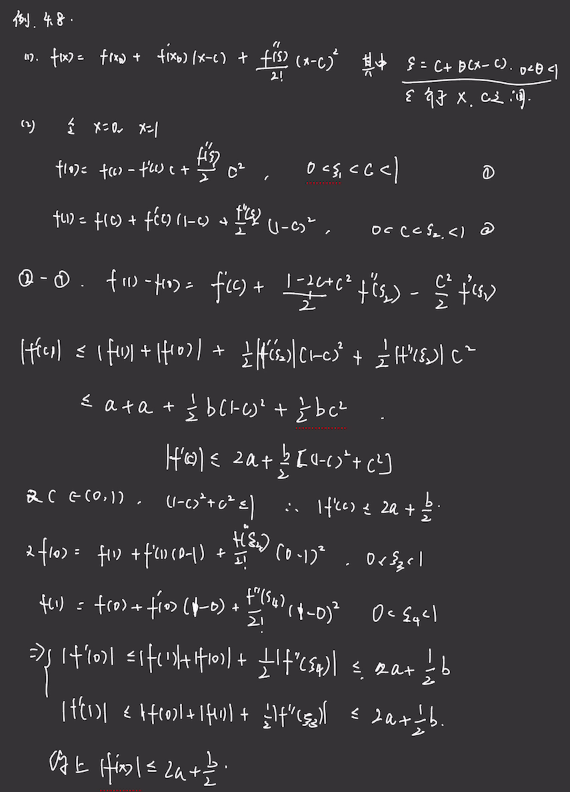 例 4.8.
(1). f(x) = f(x₀) + f'(x₀)(x-c) + f''(ξ)/2! (x-c)² 其中 ξ = c + θ(x-c). 0<θ<1
ξ 介于 x, c之间.
(2) 令 x=0 x=1
f(0) = f(c) - f'(c) c + f''(ξ₁)/2 c² , 0<ξ₁<c<1 ①
f(1) = f(c) + f'(c)(1-c) + f''(ξ₂)/2 (1-c)² , 0<c<ξ₂<1 ②
②-①. f(1)-f(0) = f'(c) + (1-2c+c²)/2 f''(ξ₂) - c²/2 f''(ξ₁)
|f'(c)| ≤ |f(1)| + |f(0)| + 1/2 |f''(ξ₂)| (1-c)² + 1/2 |f''(ξ₁)| c²
≤ a + a + 1/2 b(1-c)² + 1/2 bc² .
|f'(c)| ≤ 2a + b/2 [(1-c)² + c²]
又 c∈(0,1). (1-c)²+c² ≤1 ∴ |f'(c)| ≤ 2a + b/2.
又 f(0) = f(1) + f'(1)(0-1) + f''(ξ₃)/2! (0-1)² . 0<ξ₃<1
f(1) = f(0) + f'(0)(1-0) + f''(ξ₄)/2! (1-0)² 0<ξ₄<1
⇒ { |f'(0)| ≤ |f(1)|+|f(0)| + 1/2 |f''(ξ₄)| ≤ 2a + 1/2 b
|f'(1)| ≤ |f(0)|+|f(1)| + 1/2 |f''(ξ₃)| ≤ 2a + 1/2 b.
综上 |f'(x)| ≤ 2a + b/2.